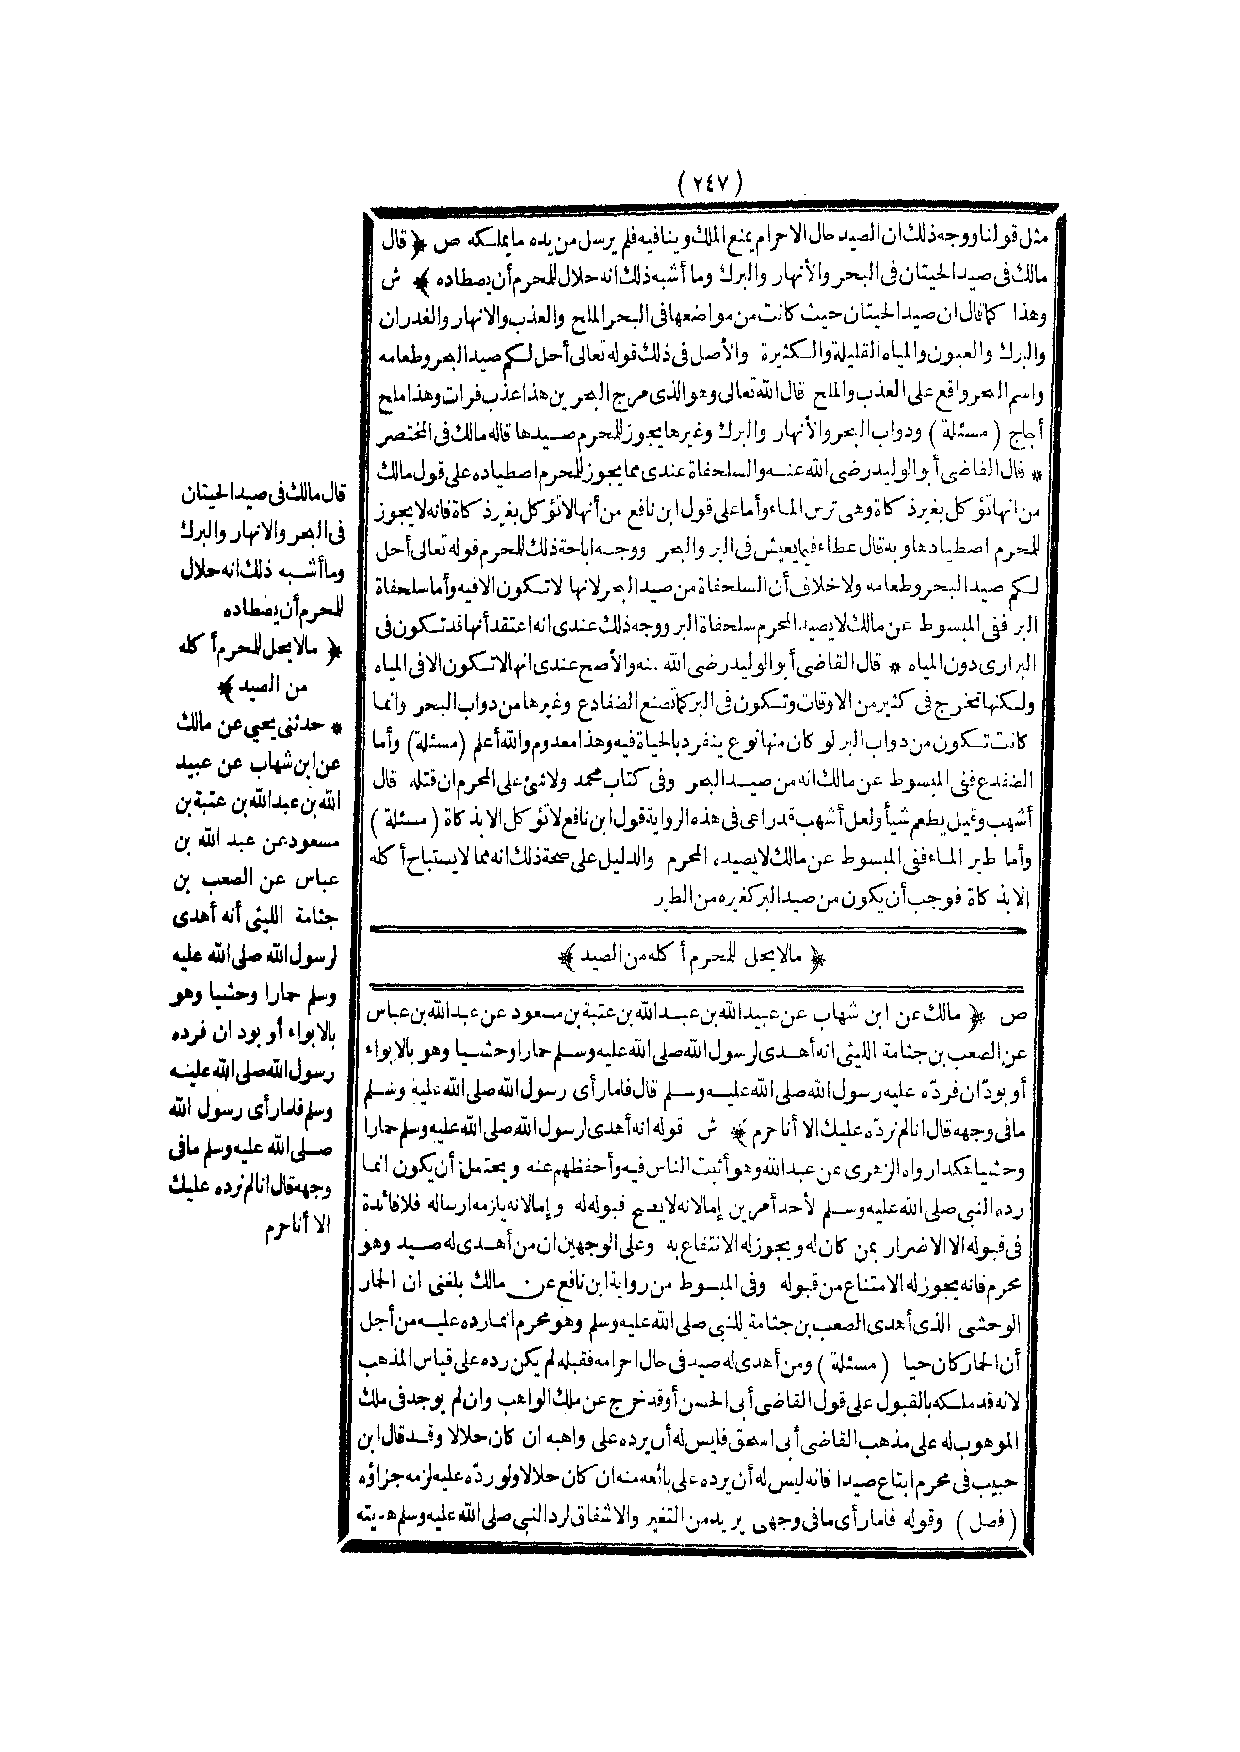 (٢٤٧)
مثل قولنا ووجه ذلك ان الصيد حال الاحرام يمنع الملك وينافيه فلم يرسل من يده ما يملكه ص ﴿ قال
مالك في صيد الحيتان في البحر والأنهار والبرك وما أشبه ذلك انه حلال للمحرم أن يصطاده ﴾ ش
وهذا كما قال ان صيد الحيتان حيث كانت من مواضعها في البحر الملح والعذب والانهار والغدران
والبرك والعيون والمياه القليلة والكثيرة والأصل في ذلك قوله تعالى أحل لكم صيد البحر وطعامه
واسم البحر واقع على العذب والملح قال الله تعالى وهو الذى مرج البحرين هذا عذب فرات وهذا ملح
أجاج (مسئلة) ودواب البحر والأنهار والبرك وغيرها يجوز للمحرم صيدها قاله مالك في المختصر
* قال القاضى أبو الوليد رضى الله عنه والسلحفاة عندى مما يجوز للمحرم اصطياده على قول مالك
من انها تؤكل بغير ذكاة وهى ترس الماء وأما على قول ابن نافع من أنها لا تؤكل بغير ذكاة فانه لا يجوز
للمحرم اصطيادها وبه قال عطاء فيما يعيش في البر والبحر ووجه اباحة ذلك للمحرم قوله تعالى أحل
لكم صيد البحر وطعامه ولا خلاف أن السلحفاة من صيد البحر لانها لا تكون الا فيه وأما سلحفاة
البر ففى المبسوط عن مالك لا يصيد المحرم سلحفاة البر ووجه ذلك عندى انه اعتقد أنها قد تكون في
البرارى دون المياه * قال القاضى أبو الوليد رضى الله عنه والأصح عندى انها لا تكون الا في المياه
ولكنها تخرج في كثير من الاوقات وتكون في البر كما تصنع الضفادع وغيرها من دواب البحر وانما
كانت تكون من دواب البر لو كان منها نوع ينفرد بالحياة فيه وهذا معدوم والله أعلم (مسئلة) وأما
الضفدع ففى المبسوط عن مالك انه من صيد البحر وفى كتاب محمد ولا شئ على المحرم ان قتله قال
أشهب وقيل يطعم شيأ ولعل أشهب قد راعى في هذه الرواية قول ابن نافع لا تؤكل الا بذكاة (مسئلة)
وأما طير الماء ففى المبسوط عن مالك لا يصيده المحرم والدليل على صحة ذلك انه مما لا يستباح أكله
الا بذكاة فوجب أن يكون من صيد البر كغيره من الطير
﴿ مالا يحل للمحرم أكله من الصيد ﴾
ص ﴿ مالك عن ابن شهاب عن عبيد الله بن عبد الله بن عتبة بن مسعود عن عبد الله بن عباس
عن الصعب بن جثامة الليثى انه أهدى لرسول الله صلى الله عليه وسلم حمارا وحشيا وهو بالابواء
أو بودّان فردّه عليه رسول الله صلى الله عليه وسلم قال فلما رأى رسول الله صلى الله عليه وسلم
ما في وجهه قال انا لم نردّه عليك الا أنا حرم ﴾ ش قوله انه أهدى لرسول الله صلى الله عليه وسلم حمارا
وحشيا هكذا رواه الزهرى عن عبد الله وهو أثبت الناس فيه وأحفظهم عنه ويحتمل أن يكون انما
رده النبى صلى الله عليه وسلم لأحد أمرين إما لانه لا يصح قبوله له وإما لانه يلزمه ارساله فلا فائدة
في قبوله الا الاضرار بمن كان له ويجوز له الانتفاع به وعلى الوجهين ان من أهدى له صيد وهو
محرم فانه يجوز له الامتناع من قبوله وفى المبسوط من رواية ابن نافع عن مالك بلغنى ان الحمار
الوحشى الذى أهدى الصعب بن جثامة للنبى صلى الله عليه وسلم وهو محرم انما رده عليه من أجل
أن الحمار كان حيا (مسئلة) ومن أهدى له صيد في حال احرامه فقبله لم يكن رده على قياس المذهب
لانه قد ملكه بالقبول على قول القاضى أبى الحسن أو قد خرج عن ملك الواهب وان لم يوجد في ملك
الموهوب له على مذهب القاضى أبى اسحق فليس له أن يرده على واهبه ان كان حلالا وقد قال ابن
حبيب في محرم ابتاع صيدا فانه ليس له أن يرده على بائعه منه ان كان حلالا ولو ردّه عليه لزمه جزاؤه
(فصل) وقوله فلما رأى ما في وجهى يريد من التغير والاشفاق لرد النبى صلى الله عليه وسلم هديته
قال مالك في صيد الحيتان
في البحر والانهار والبرك
وما أشبه ذلك انه حلال
للمحرم أن يصطاده
﴿ مالا يحل للمحرم أكله
من الصيد ﴾
* حدثنى يحيى عن مالك
عن ابن شهاب عن عبيد
الله بن عبد الله بن عتبة بن
مسعود عن عبد الله بن
عباس عن الصعب بن
جثامة الليثى أنه أهدى
لرسول الله صلى الله عليه
وسلم حمارا وحشيا وهو
بالابواء أو بودان فرده
رسول الله صلى الله عليه
وسلم فلما رأى رسول الله
صلى الله عليه وسلم ما في
وجهه قال انا لم نرده عليك
الا أنا حرم